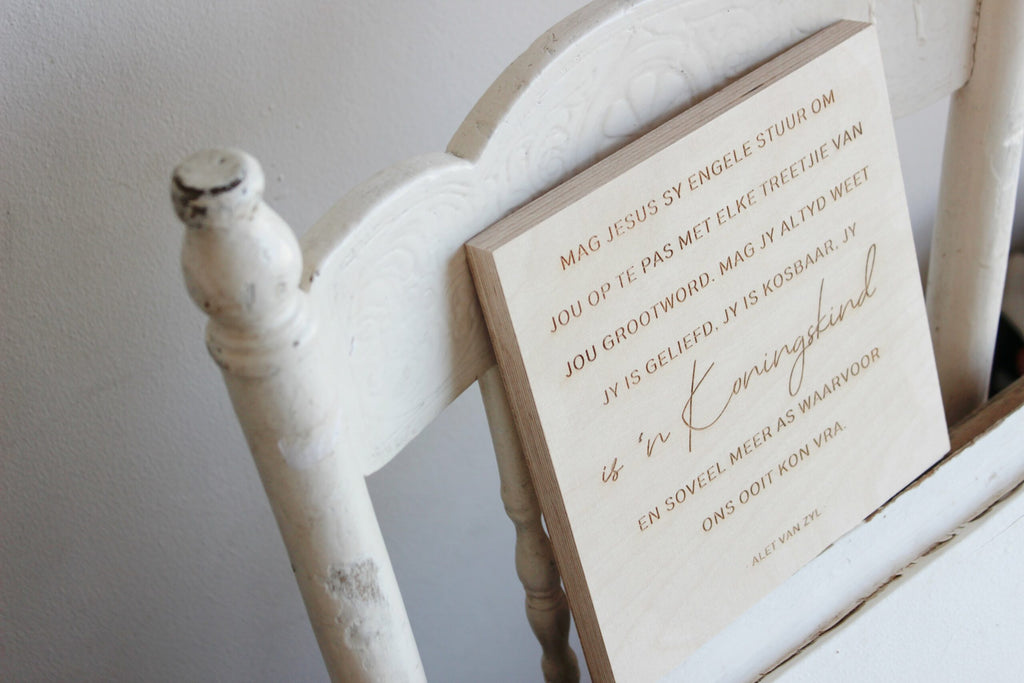 MAG JESUS SY ENGELE STUUR OM
JOU OP TE PAS MET ELKE TREETJIE VAN
JOU GROOTWORD. MAG JY ALTYD WEET
JY IS GELIEFD, JY IS KOSBAAR, JY
is 'n Koningskind
EN SOVEEL MEER AS WAARVOOR
ONS OOIT KON VRA.
ALET VAN ZYL